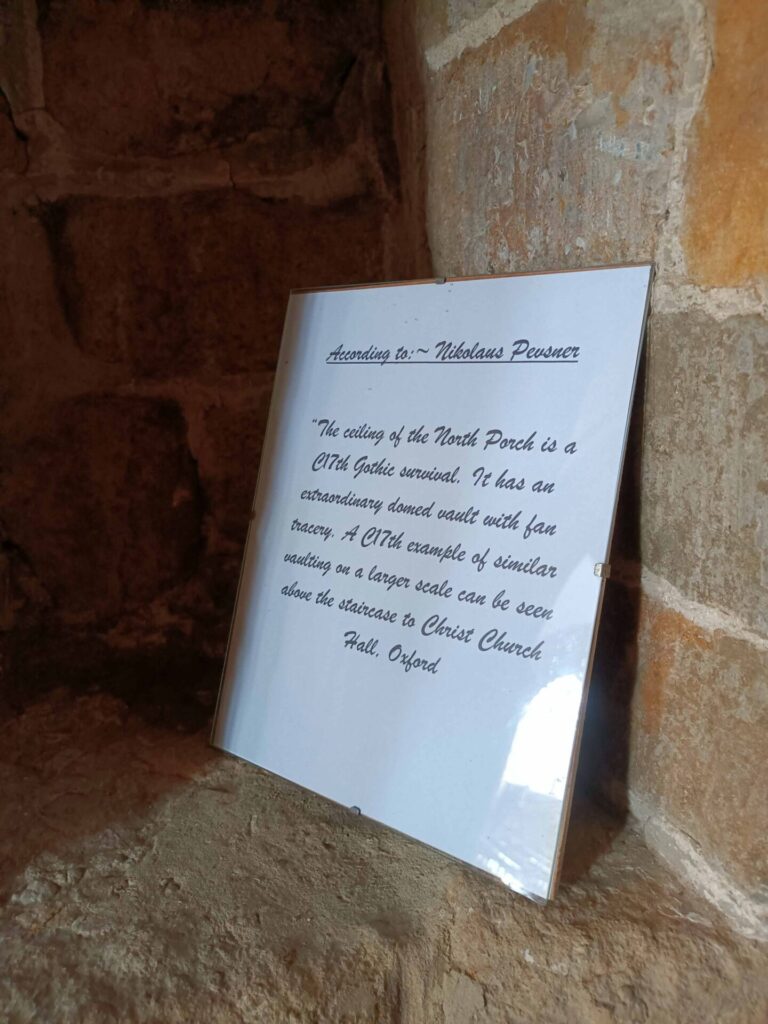 According to:~ Nikolaus Pevsner
"The ceiling of the North Porch is a
C17th Gothic survival. It has an
extraordinary domed vault with fan
tracery. A C17th example of similar
vaulting on a larger scale can be seen
above the staircase to Christ Church
Hall, Oxford